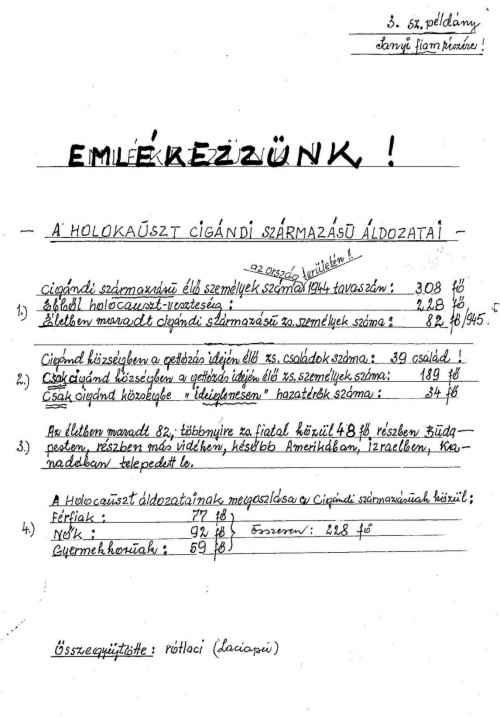 3. sz. példány
Sanyi fiam részére!
EMLÉKEZZÜNK !
- A HOLOKAUSZT CIGÁNDI SZÁRMAZÁSÚ ÁLDOZATAI -
az ország területén!
Cigándi származású élő személyek száma 1944 tavaszán: 308 fő
1.) Ebből holocauszt-veszteség: 228 fő
Életben maradt cigándi származású zs. személyek száma: 82 fő/945.
Cigánd községben a gettózás idején élő zs. családok száma: 39 család !
2.) Csak cigánd községben a gettózás idején élő zs. személyek száma: 189 fő
Csak cigánd községbe "ideiglenesen" hazatérők száma: 34 fő
3.) Az életben maradt 82, többnyire zs. fiatal közül 48 fő részben Buda-
pesten, részben más vidéken, később Amerikában, Izraelben, Ka-
nadában telepedett le.
A Holocauszt áldozatainak megoszlása a Cigándi származásúak közül:
Férfiak: 77 fő
4.) Nők: 92 fő Összesen: 228 fő
Gyermekkorúak: 59 fő
Összegyűjtötte: (Laciapu)